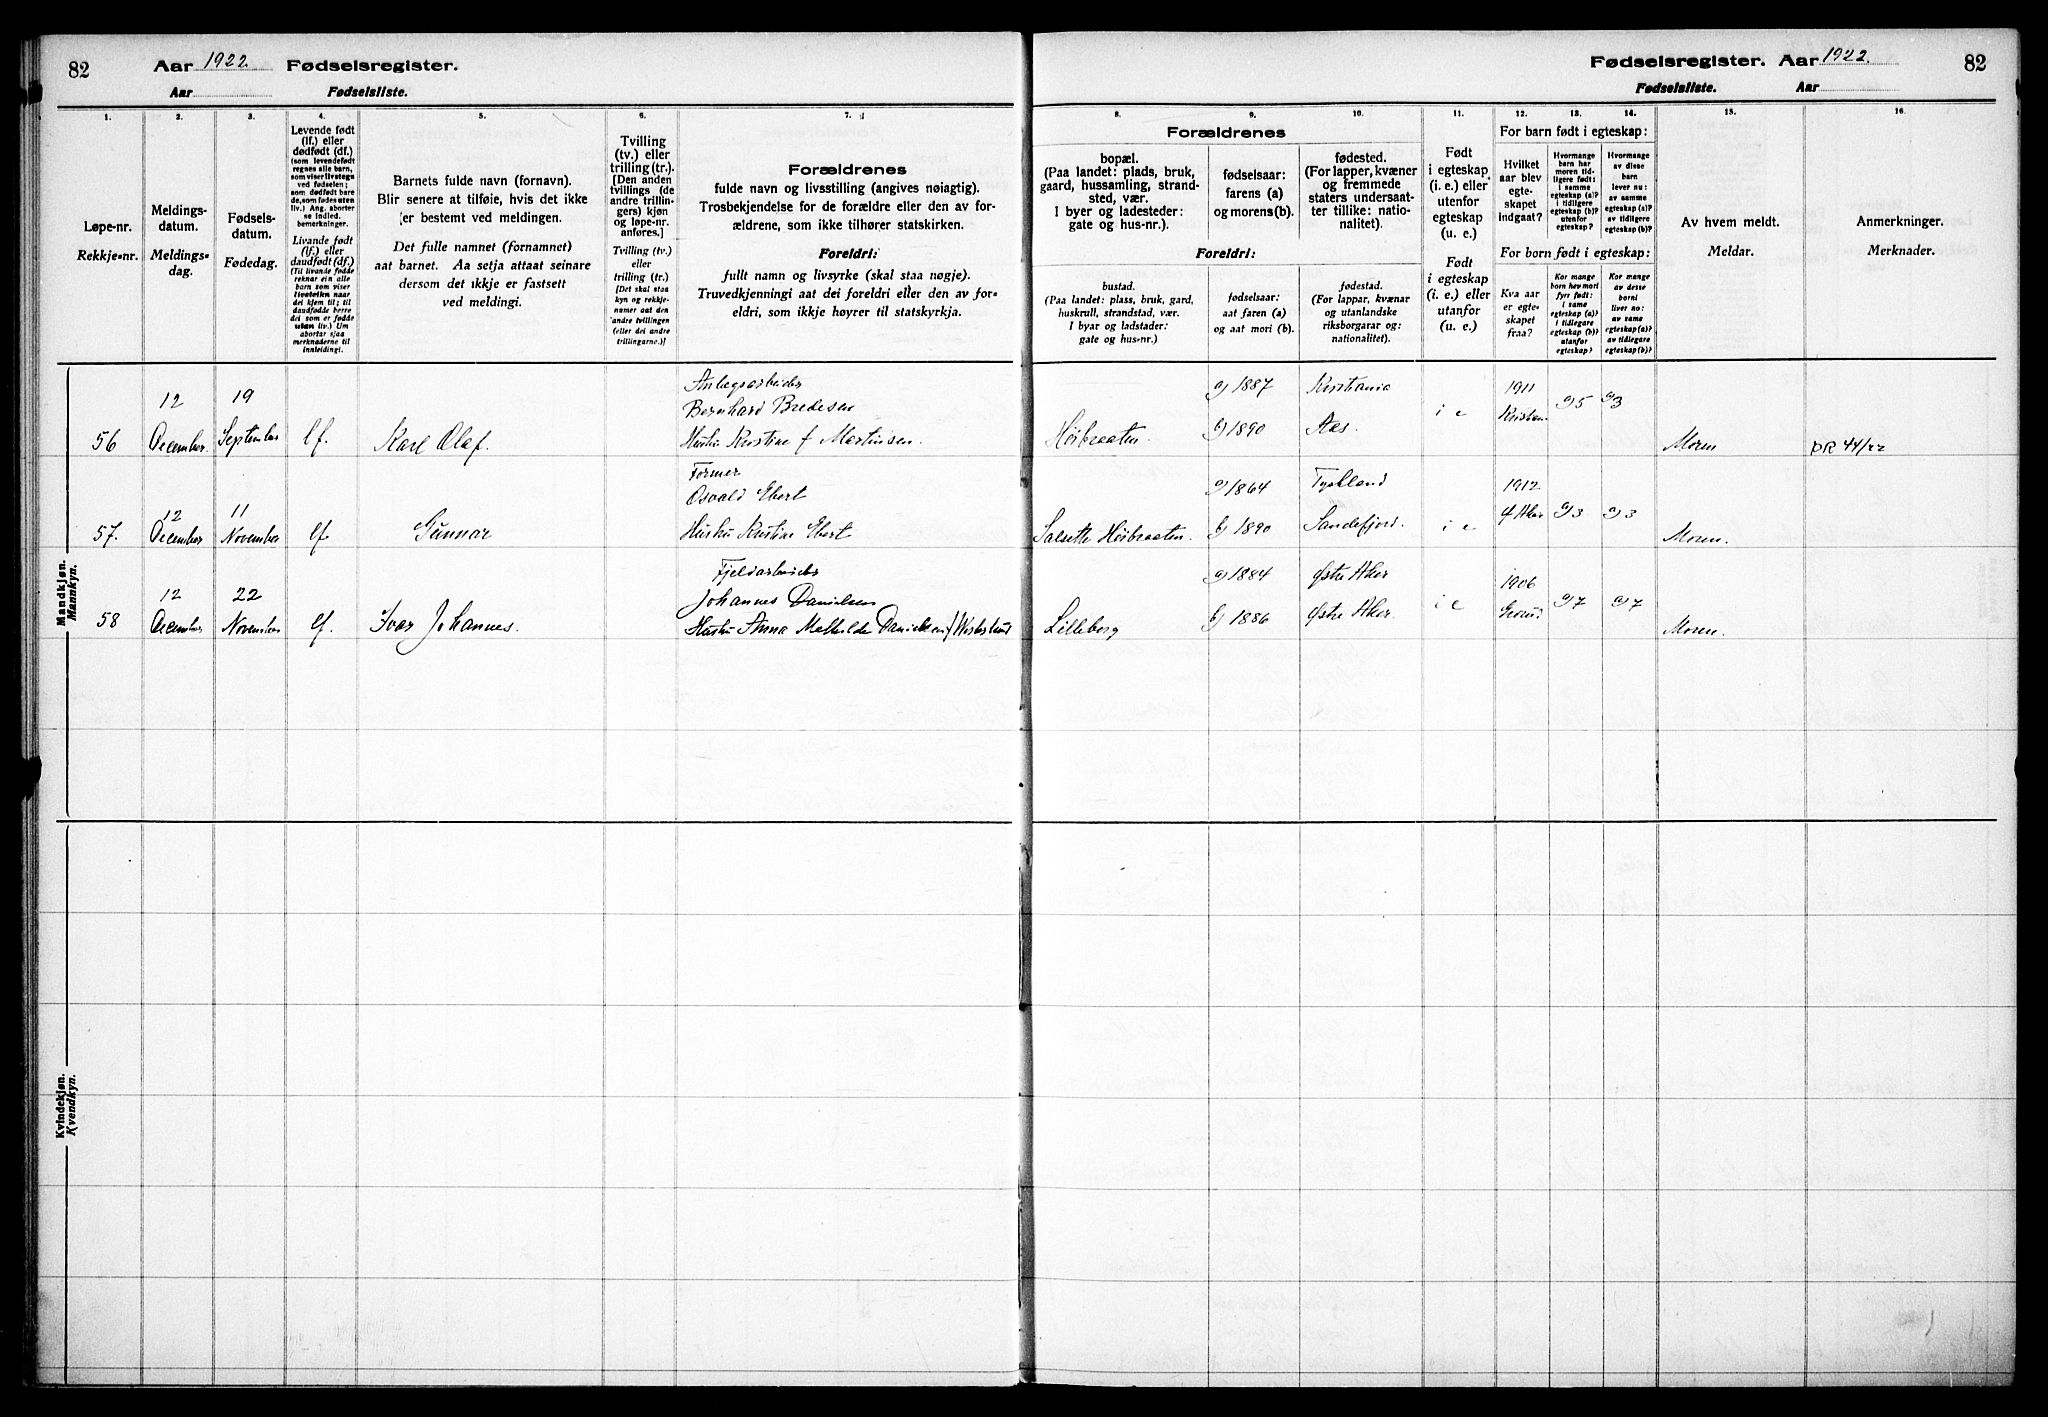 82
Aar 1922. Fødselsregister.
Aar Fødselsliste.
Fødselsregister. Aar 1922. 82
Fødselsliste. Aar
1. 2. 3. 4. 5. 6. 7.
Løpe-nr.
Rekkje-nr.
Meldings-
datum.
Meldings-
dag.
Fødsels-
datum.
Fødedag.
Levende født
(lf.) eller
dødfødt (df.)
(som levendefødt
regnes alle barn,
som viser livstegn
ved fødselen;
som dødfødt bare
de, som fødes uten
liv.) Ang. aborter
se indled.
bemerkninger.
Livande født
(lf.) eller
daudfødt (df.)
(Til livande fødde
reknar ein alle
barn som viser
livsteikn naar
dei kjem til; til
daudfødde berre
dei som er fødde
utan liv.) Um
abortar sjaa
merknaderne til
innleidingi.
Barnets fulde navn (fornavn).
Blir senere at tilføie, hvis det ikke
er bestemt ved meldingen.
Det fulle namnet (fornamnet)
aat barnet. Aa setja attaat seinare
dersom det ikkje er fastsett
ved meldingi.
Tvilling
(tv.) eller
trilling (tr.).
[Den anden
tvillings (de
andre trillin-
gers) kjøn
og løpe-nr.
anføres.]
Tvilling (tv.)
eller
trilling (tr.)
[Det skal staa
kyn og rekkje-
numer aat den
andre tvillingen
(eller dei andre
trillingarne.)]
Forældrenes
fulde navn og livsstilling (angives nøiagtig).
Trosbekjendelse for de forældre eller den av for-
ældrene, som ikke tilhører statskirken.
Foreldri:
fullt namn og livsyrke (skal staa nøgje).
Truvedkjenningi aat dei foreldri eller den av for-
eldri, som ikkje høyrer til statskyrkja.
8. 9. 10. 11. 12. 13. 14. 15. 16.
Forældrenes
bopæl.
(Paa landet: plads, bruk,
gaard, hussamling, strand-
sted, vær.
I byer og ladesteder:
gate og hus-nr.).
fødselsaar:
farens (a)
og morens (b).
fødested.
(For lapper, kvæner
og fremmede
staters undersaat-
ter tillike: natio-
nalitet).
Foreldri:
bustad.
(Paa landet: plass, bruk, gard,
huskrull, strandstad, vær.
I byar og ladstader:
gate og hus-nr.)
fødselsaar:
aat faren (a)
og aat mori (b).
fødestad.
(For lappar, kvænar
og utanlandske
riksborgarar og:
nationalitet).
Født
i egteskap
(i. e.) eller
utenfor
egteskap
(u. e.)
Født
i egteskap
(i. e.) eller
utanfor
(u. e.)
For barn født i egteskap:
Hvilket
aar blev
egte-
skapet
indgaat?
Hvormange
barn har
moren tid-
ligere født:
i samme
egteskap (a)?
i tidligere
egteskap (b)?
utenfor
egteskap?
Hvormange
av disse
barn
lever nu:
av samme
egteskap (a)?
av tidligere
egteskap (b)?
For born født i egteskap:
Kva aar
er egte-
skapet
fraa?
Kor mange
born hev mori
fyrr født:
i same
egteskap (a)?
i tidlegare
egteskap (b)?
utanfor
egteskap?
Kor mange
av desse
borni
liver no:
av same
egteskap (a)?
av tidlegare
egteskap (b)?
Av hvem meldt.
Meldar.
Anmerkninger.
Merknader.
Mandkjøn.
Mannkyn.
56
12
December.
19
September
lf.
Karl Olaf.
Anlegsarbeider
Bernhard Bredesen
Hustru Kristine f Martinsen
Høibraaten.
a) 1887
b) 1890
Kristiania
Aas.
i e
1911
a) 5
a) 3
Moren
DR 44/22
57.
12
December
11
November
lf
Gunnar
Former
Osvald Ebert
Hustru Kristine Ebert
Høibraaten.
a) 1864
b) 1890
Tyskland
Sandefjord.
i e
1912
Aker
a) 3
a) 3
Moren.
58
12
December
22
November
lf.
Ivar Johannes.
Fjeldarbeider
Johannes Danielsen
Hustru Anna Mathilde Danielsen
Lilleborg
a) 1884
b) 1886
Østre Aker
Østre Aker.
i e
1906
Grorud
a) 7
a) 7
Moren.
Kvindekjøn.
Kvendkyn.